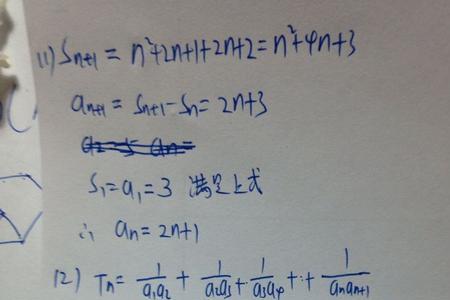 (1) Sn+1 = n²+2n+1+2n+2 = n²+4n+3
an+1 = Sn+1-Sn = 2n+3
S1=a1=3 满足上式
∴ an=2n+1
(2) Tn= 1/a1a2 + 1/a2a3 + 1/a3a4 + ··+ 1/anan+1